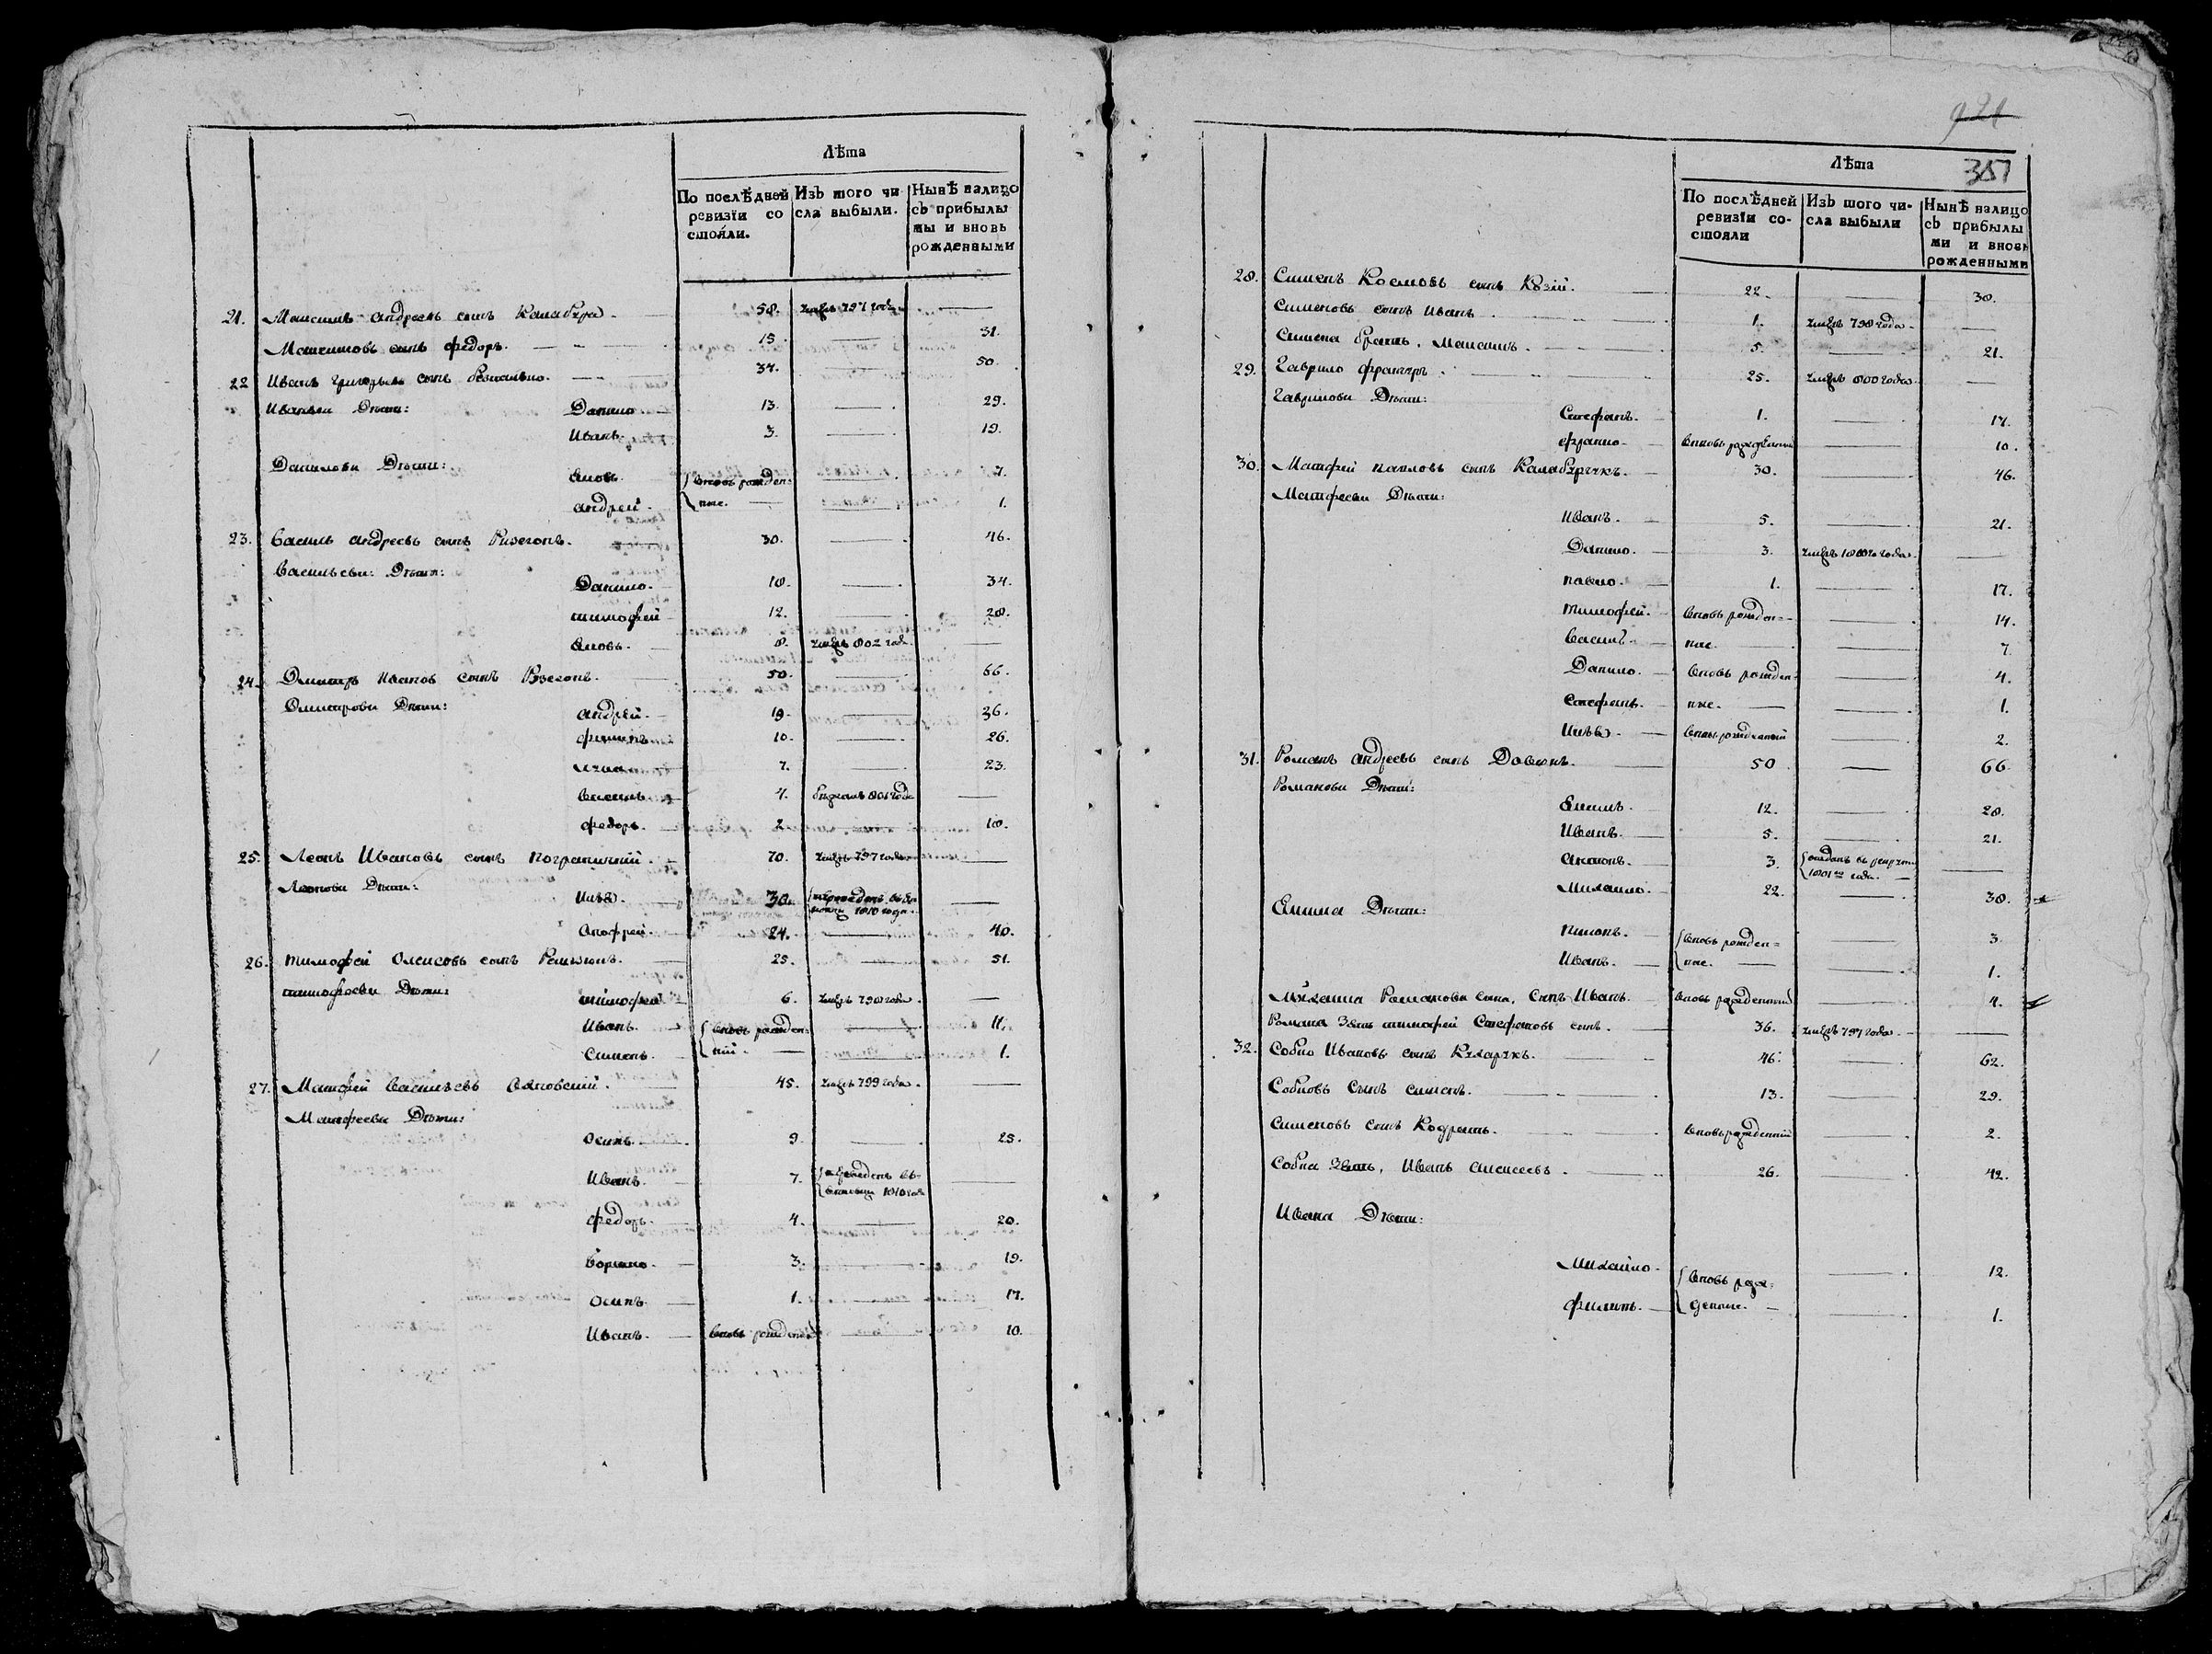 Лѣта
По послѣдней ревизїи со стояли.
Изъ того числа выбыли.
Нынѣ налицо съ прибылы мы и вновь рожденными
21. Максимъ андреевъ сынъ Калабура 58. умеръ 797 года —
Максимовъ сынъ федоръ. 15. — 31.
22 Иванъ григорьевъ сынъ 34. — 50.
Ивановы Дѣти: Данило 13. — 29.
Иванъ. 3. — 19.
Даниловы Дѣти: Яковъ вновь рожден= — 7.
андрей. ные. — 1.
23. Василь андреевъ сынъ 30. — 46.
Васильевы Дѣти: Данило. 18. — 34.
тимофей 12. — 28.
Яковъ. 8. умеръ 802 года —
24. Дмитръ Ивановъ сынъ 50. — 66.
Дмитровы Дѣти: андрей. 19. — 36.
филипъ 10. — 26.
7. — 23.
василь 4. 801 года —
федоръ. 2. — 18.
25. Леонъ Ивановъ сынъ пограничний. 70. умеръ 797 года —
Леоновы Дѣти: 30. 1810 года —
24. — 40.
26. тимофей сынъ 25. — 51.
тимофеевы Дѣти: тимофей 6. умеръ 798 года —
Иванъ. вновь рожден= — 11.
Симонъ. ній. — 1.
27. Матфей Васильевъ 45. умеръ 799 года. —
Матфеевы Дѣти:
Осипъ. 9. — 25.
Иванъ. 7. 1810 года —
федоръ. 4. — 20.
3. — 19.
Осипъ. 1. — 17.
Иванъ. вновь рожденой — 10.
921
357
Лѣта
По послѣдней ревизїи состояли
Изъ того числа выбыли
Нынѣ налицо съ прибылы ми и вновь рожденными
28. Сименъ Космовъ сынъ Кузій. 22. — 38.
Сименовъ сынъ Иванъ 1. умеръ 798 года. —
Симена братъ, Максимъ. 5. — 21.
29. Гаврило 25. умеръ 800 года —
Гавриловы Дѣти:
Стефанъ. 1. — 17.
вновь рожденный — 10.
30. Матфей павловъ сынъ Калабурчукъ. 30. — 46.
Матфеевы Дѣти:
Иванъ. 5. — 21.
Данило. 3. умеръ года —
павло. 1. — 17.
тимофей. вновь рожден= — 14.
Василь. ные — 7
Данило. вновь рожден= — 4.
Стефанъ. ные. — 1.
вновь рожденный — 2.
31. Романъ андреевъ сынъ 50 — 66.
Романовы Дѣти:
12. — 28.
Иванъ. 5. — 21.
3. отданъ въ рекруты 1801го года. —
Михайло. 22. — 38.
Дѣти:
вновь рожден= — 3.
Иванъ. ные. — 1.
Михаила Романова сына, сынъ Иванъ. вновь рожденный — 4.
Романа Зять тимофей Стефановъ сынъ. 36. умеръ 797 года. —
32. Ивановъ сынъ 46. — 62.
сынъ сименъ. 13. — 29.
Сименовъ сынъ Кодратъ. вновь рожденный — 2.
Зять, Иванъ алексеевъ. 26. — 42.
Ивана Дѣти:
Михайло. вновь рож= — 12.
филипъ. денные. — 1.